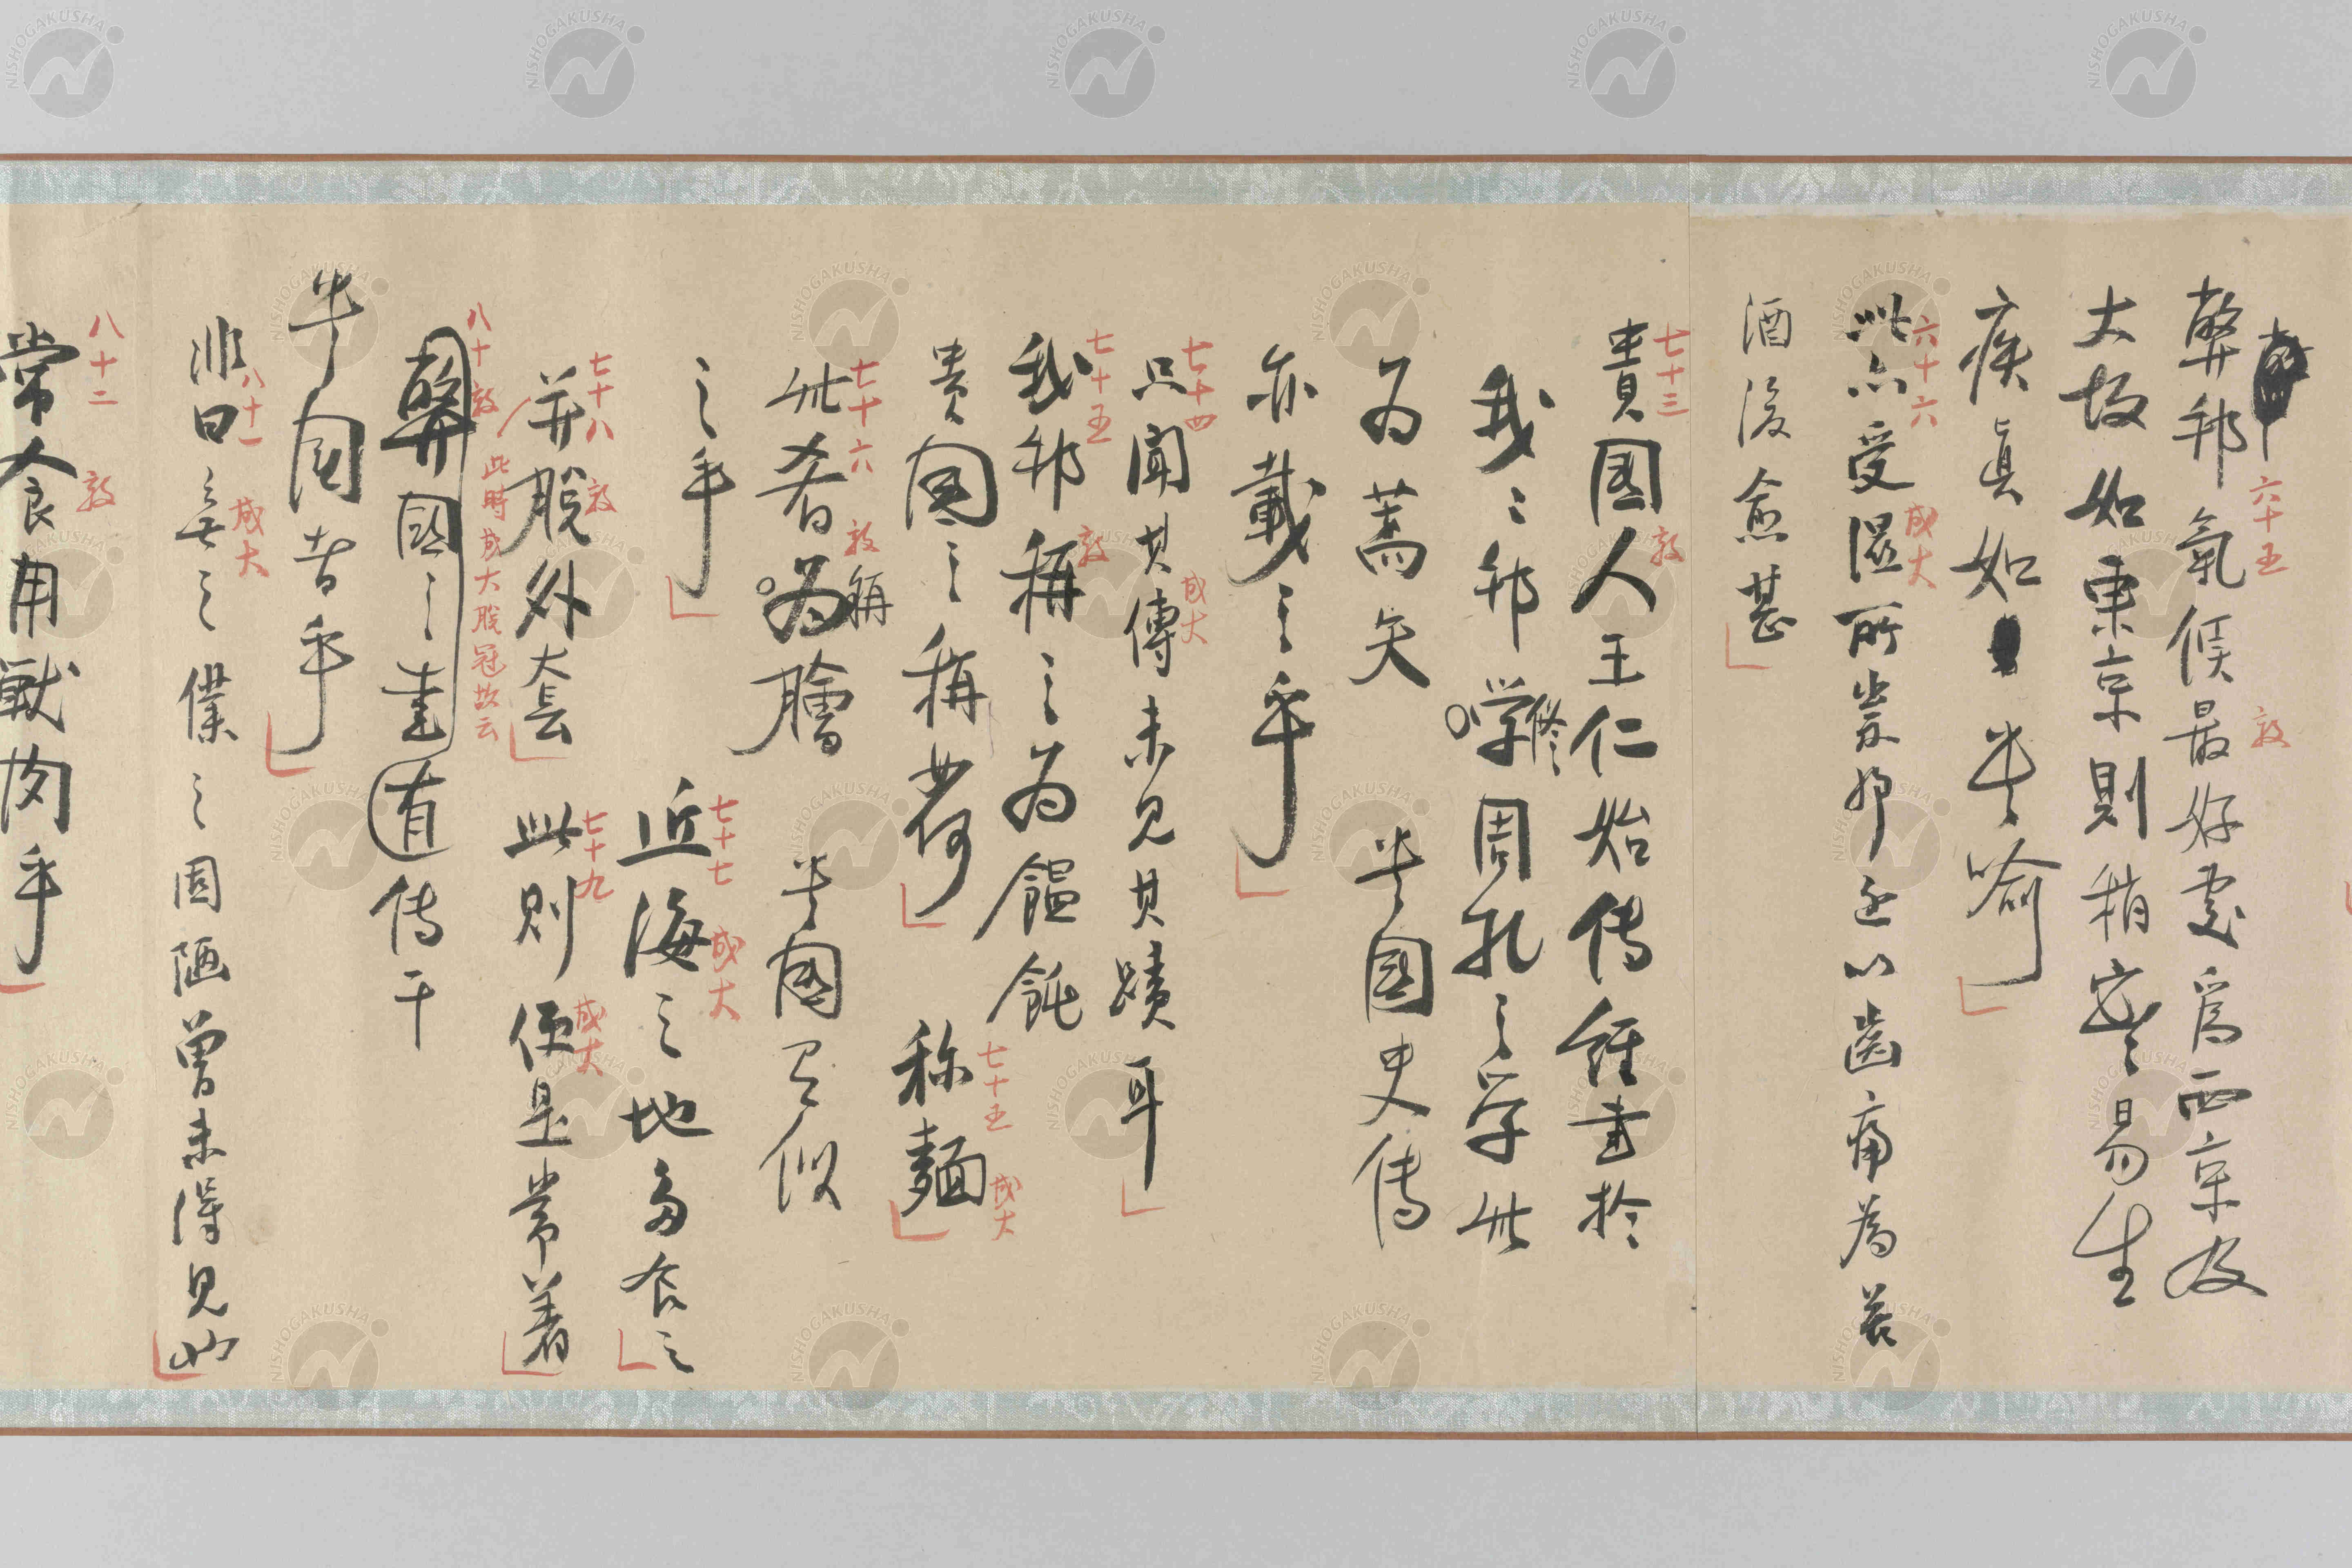 六十五 敦
弊邦氣候最好處為西京及
大坂如東京則稍寒易生
疾真如 貴喻
六十六 成大
此亦受濕所崇 即 以齒痛為苦
酒後愈甚
七十三 敦
貴國人王仁始傳經書於
我邦 修 周孔之学此
為蒿矢 貴國史傳
亦載之乎
七十四 成大
只聞其傳未見其蹟耳
七十五 敦
我邦稱之為饂飩
貴國之稱若何
七十五 成大
称麵
七十六 敦
此肴 稱 為膾 貴國 似
之乎
七十七 成大
近海之地多食之
七十八 敦
并脱外套
七十九 成大
此則便是常著
八十 敦
此時成大脱冠故云
弊國之書有傳于
貴國者乎
八十一 成大
非曰無之僕之固陋曾未得見
八十二 敦
常食用獣肉乎
NISHOGAKUSHA